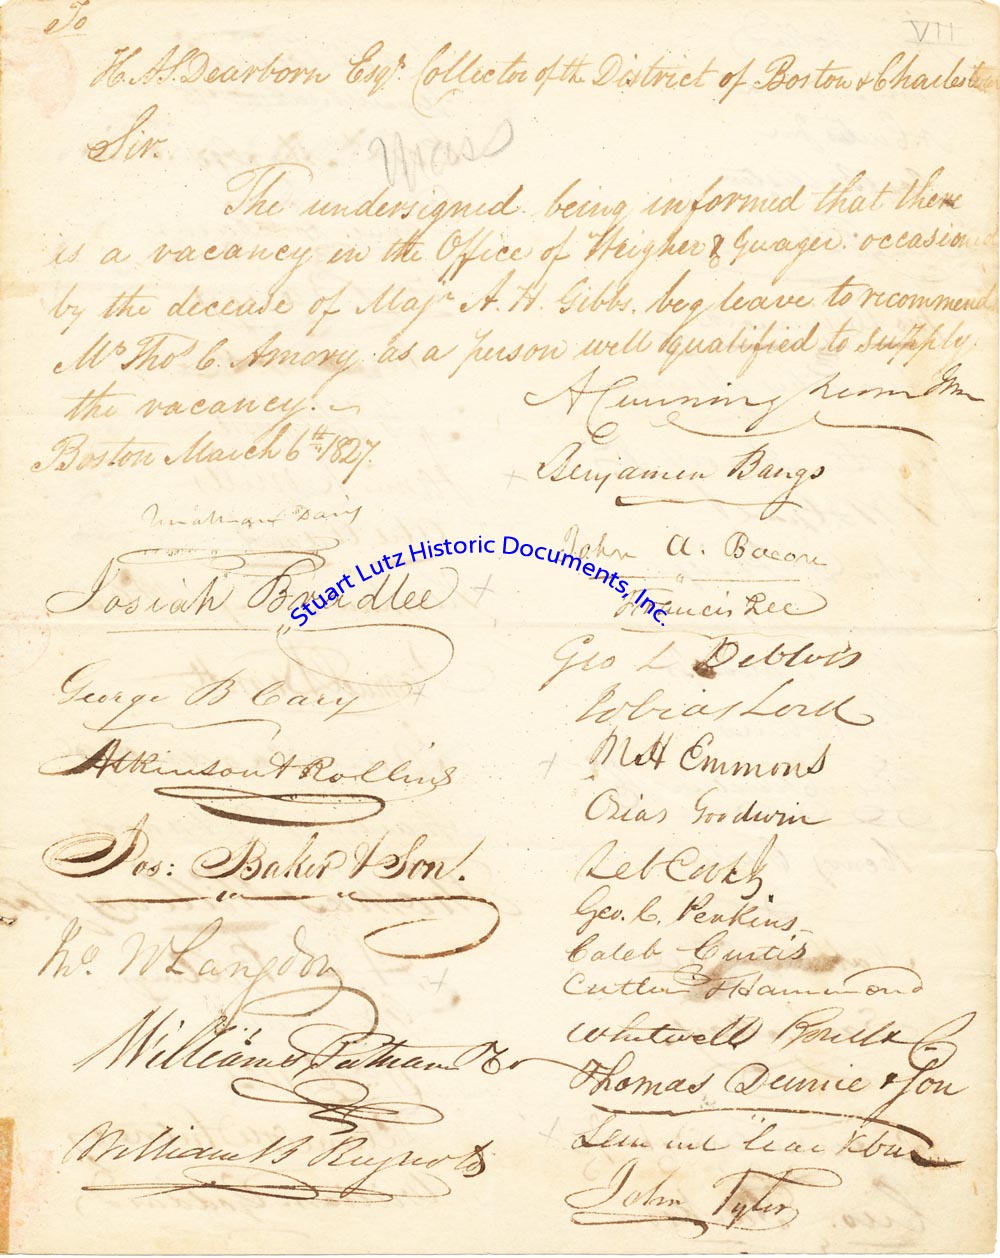 To
VII
H. A. S. Dearborn Esqr. Collector of the District of Boston & Charlestown
Sir.
The undersigned being informed that there
is a vacancy in the Office of Weigher & Guager. occasioned
by the decease of Majr A. H. Gibbs. beg leave to recommend
Mr Thos C. Amory as a person well qualified to supply.
the vacancy.
Boston March 6th 1827.
A Cunningham Jnr
Benjamin Bangs
Davis
John A. Bacon
Josiah Bradlee
Francis Lee
Geo L Deblois
George B Cary
Tobias Lord
Atkinson & Rollins
M H Emmons
Ozias Goodwin
Jos: Baker & Son.
Zeb Cook Jr
Geo. C. Perkins
Caleb Curtis
Jno. W Langdon
Cutler & Hammond
Whitwell Bond & Co
Williams Putnam & Co
Thomas Dennie & Son
William B Reynolds
John Tyler
Stuart Lutz Historic Documents, Inc.